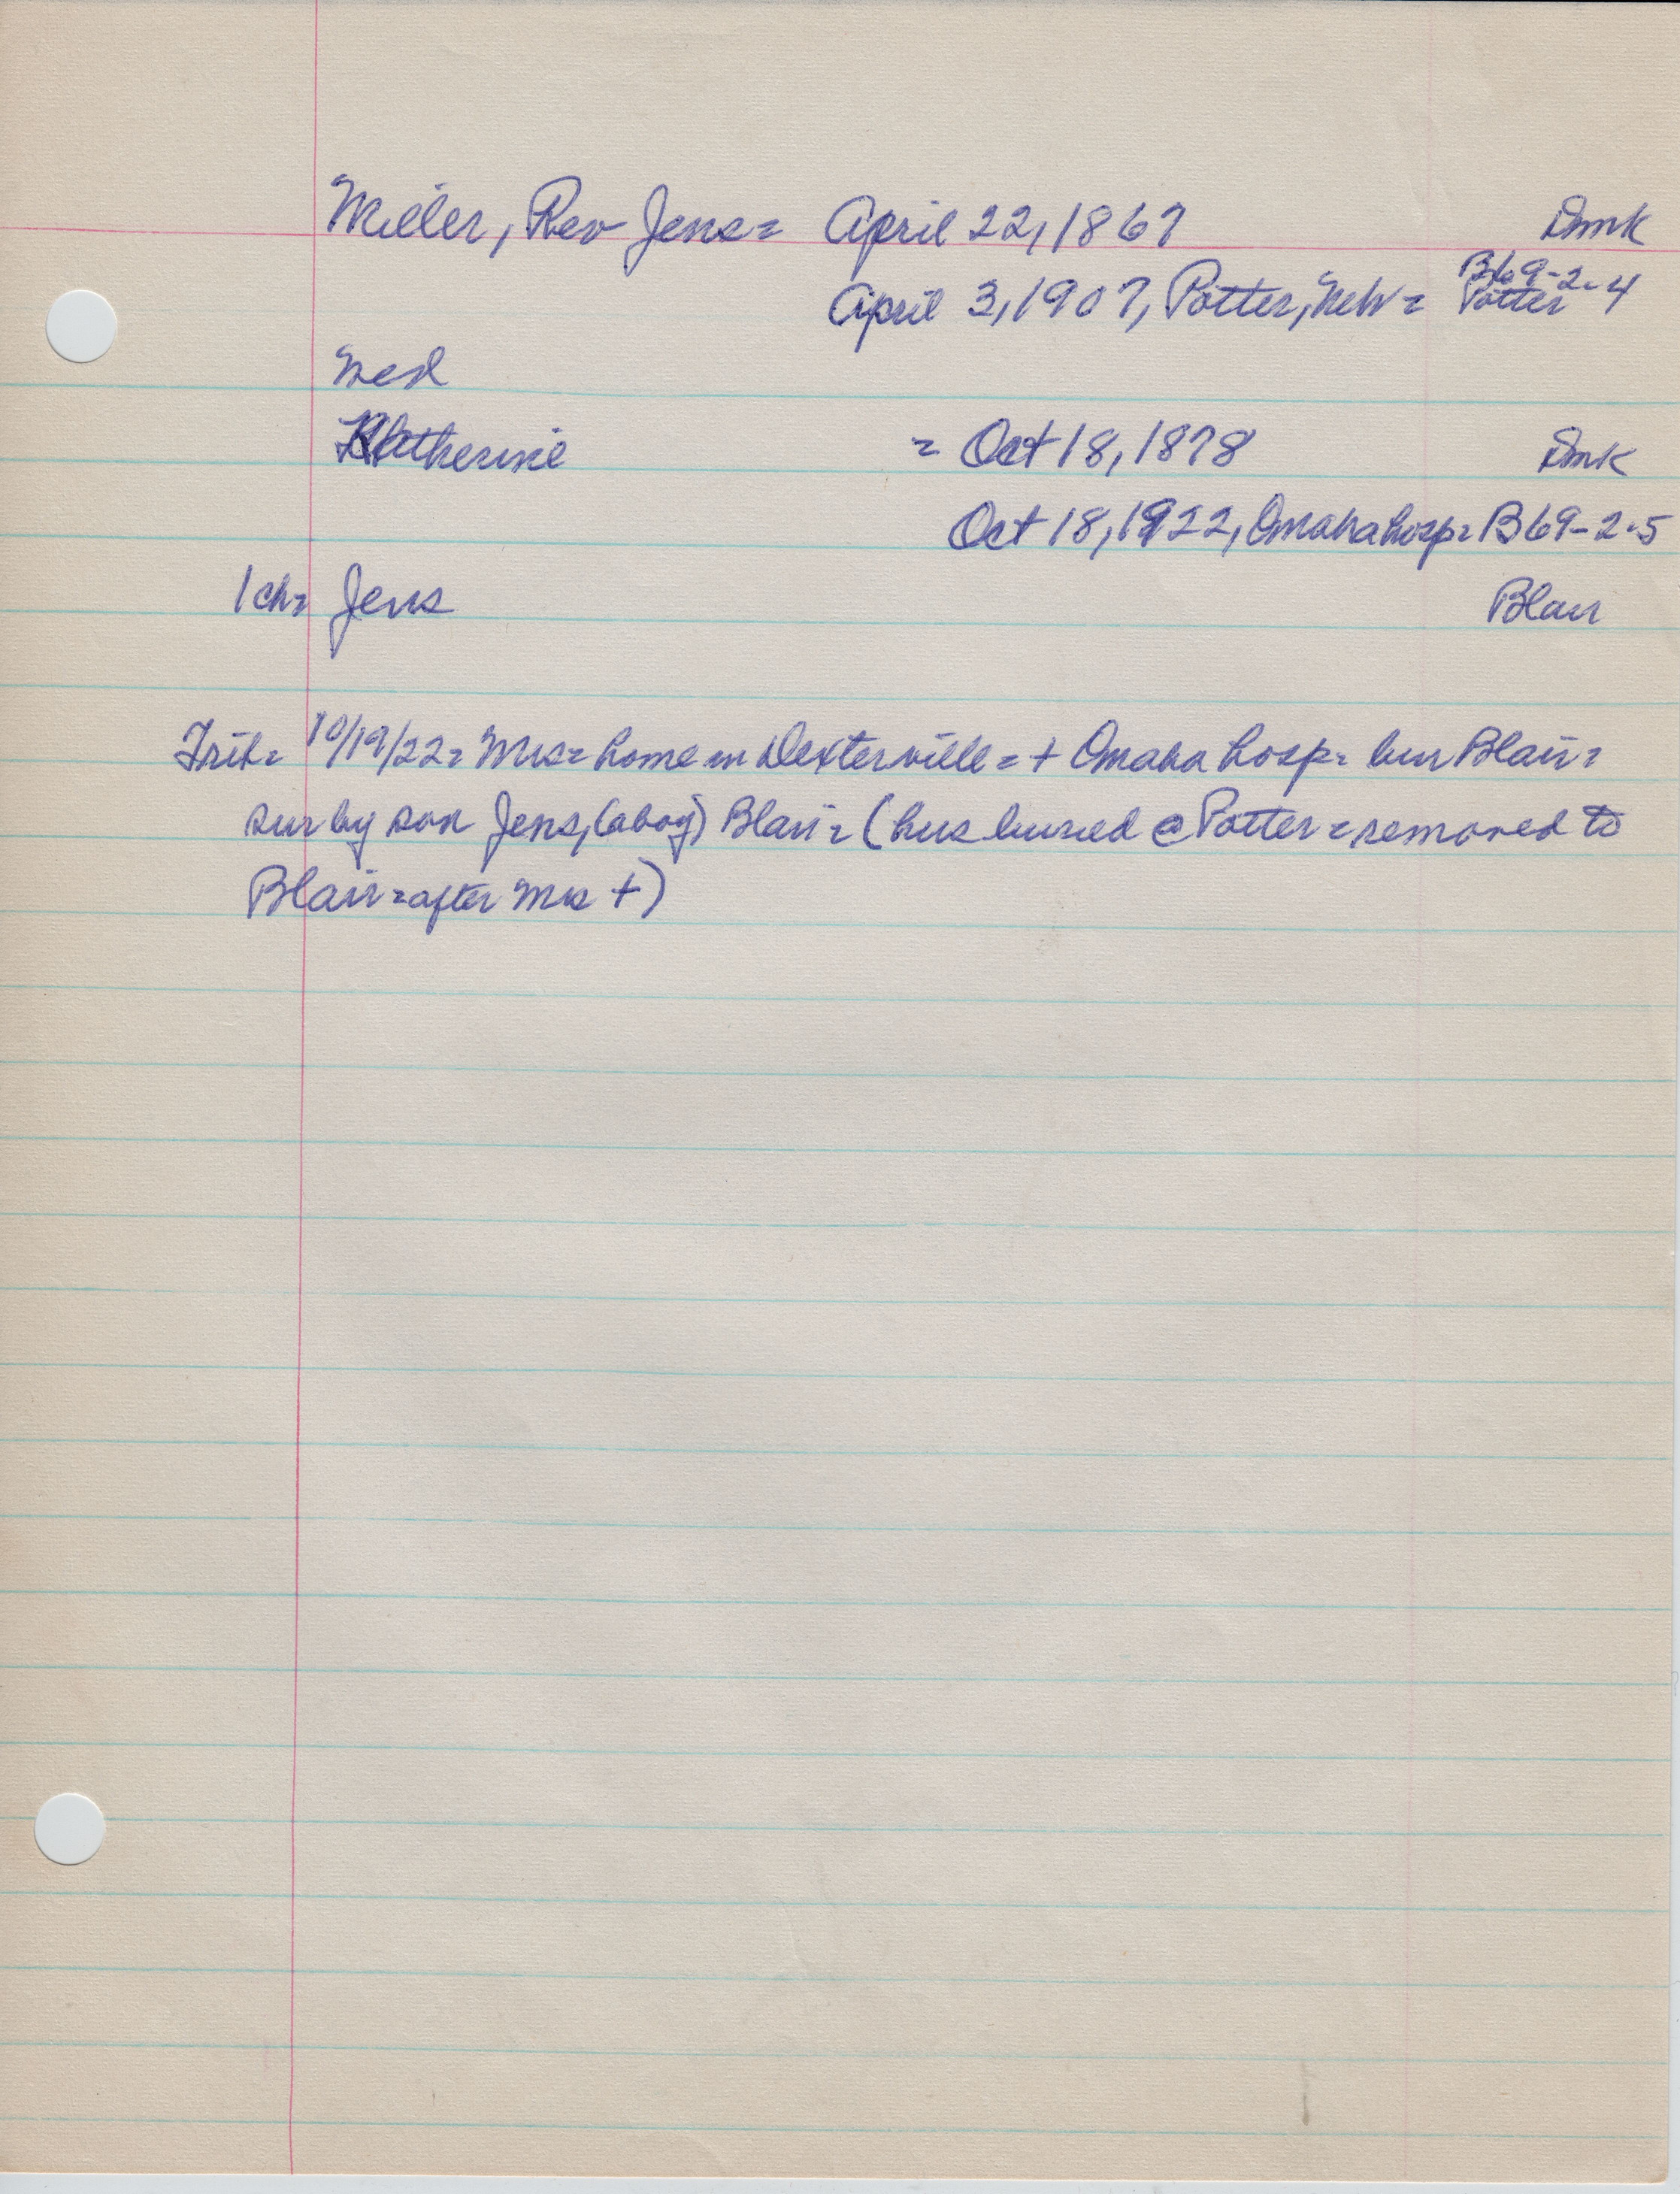 Miller, Rev Jens = April 22, 1867 Dmk
B69-2-4
April 3, 1907, Potter, Neb = Potter
Med
Katherine = Oct 18, 1878 Dmk
Oct 18, 1922, Omaha hosp = B69-2-5
1 ch = Jens Blair
Trib = 10/19/22 = Mrs = home in Dexterville = + Omaha hosp = bur Blair =
sur by son Jens, (a boy) Blair = (hus buried @ Potter = removed to
Blair = after Mrs +)